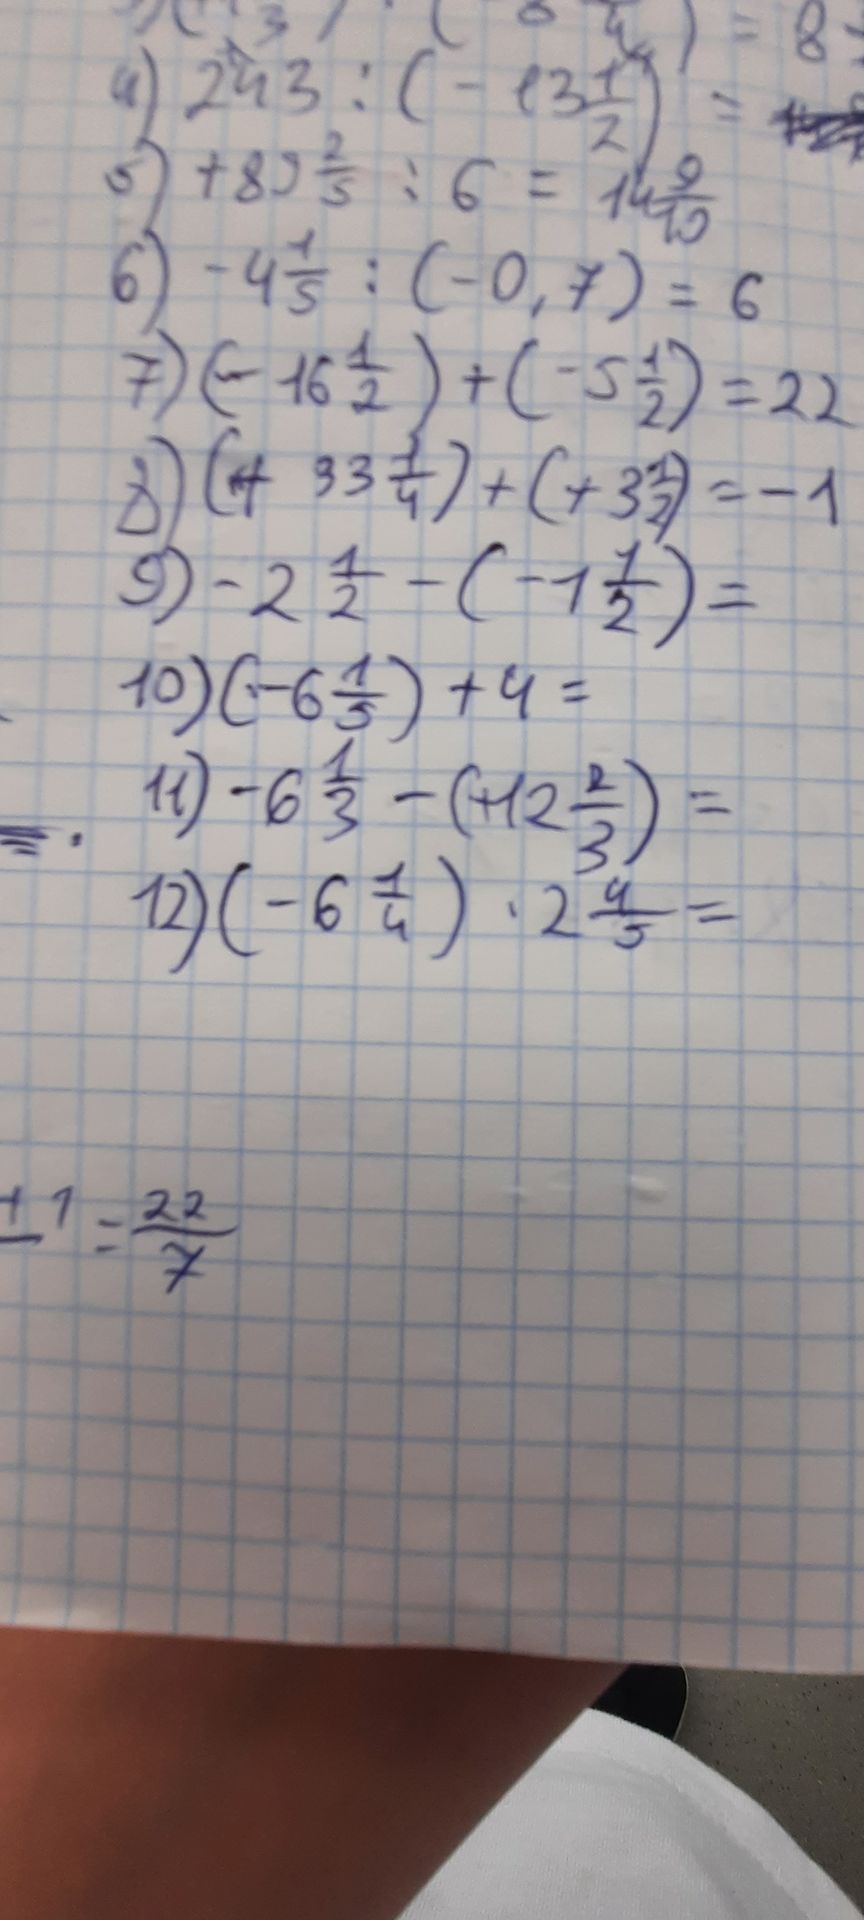 4) 243 : (- 13 1/2) =
5) +89 2/5 : 6 = 14 9/10
6) -4 1/5 : (-0,7) = 6
7) (-16 1/2) + (-5 1/2) = 22
8) (+ 33 1/4) + (+3 1/2) = -1
9) -2 1/2 - (-1 1/2) =
10) (-6 1/5) + 4 =
11) -6 1/3 - (+12 2/3) =
12) (-6 1/4) · 2 4/5 =
1 = 22/7